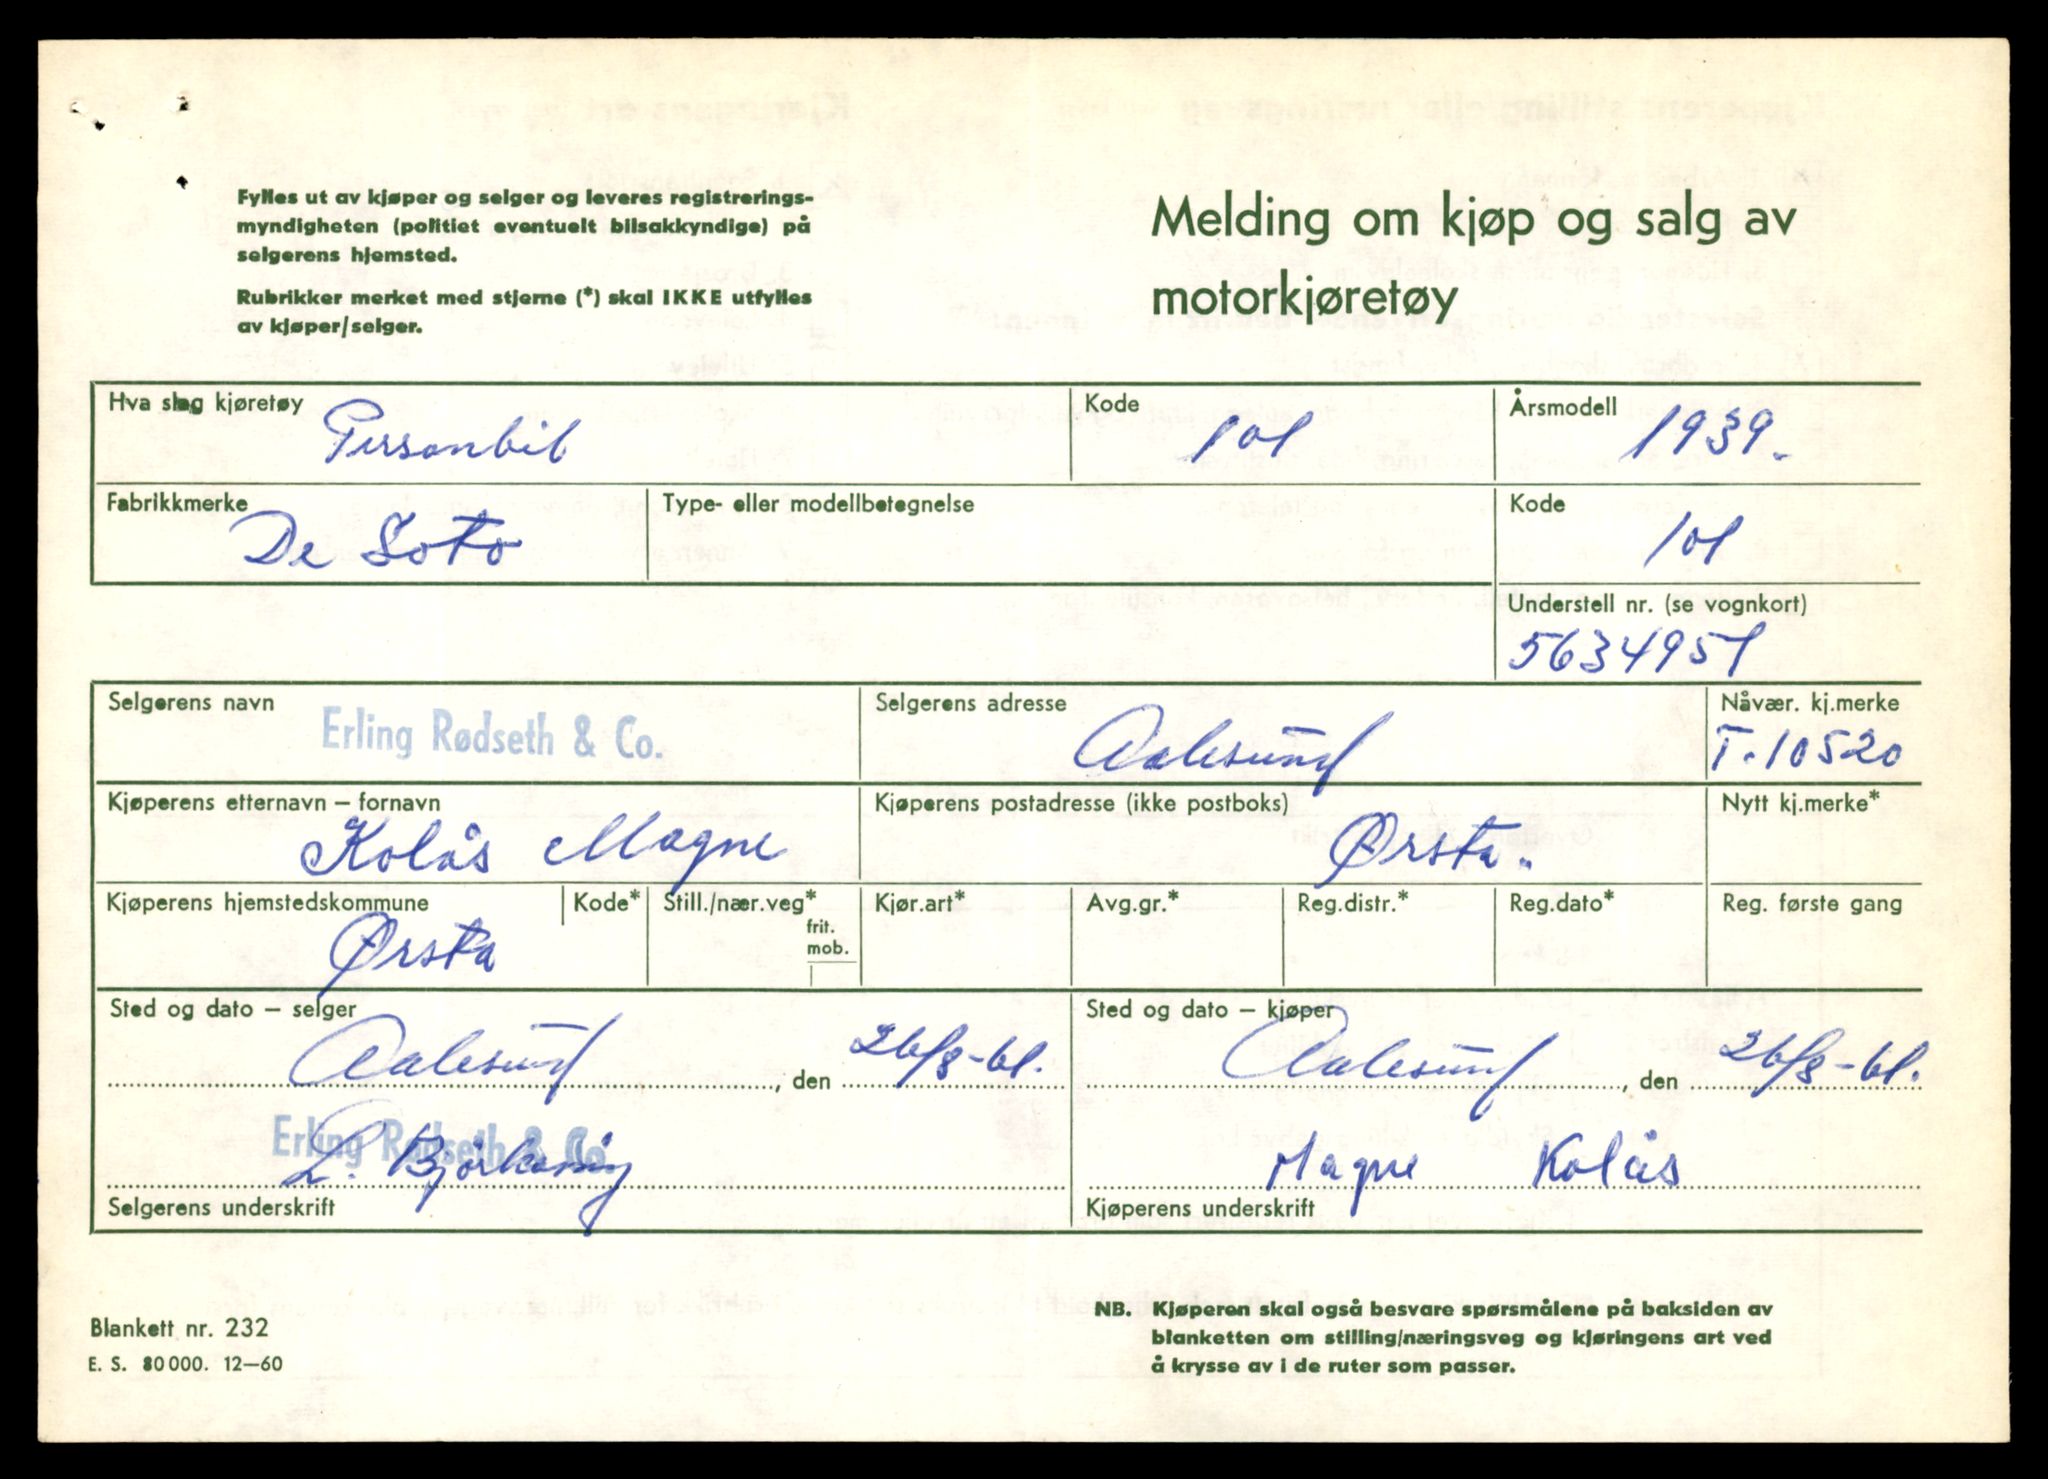 Fylles ut av kjøper og selger og leveres registrerings-
myndigheten (politiet eventuelt bilsakkyndige) på
selgerens hjemsted.
Rubrikker merket med stjerne (*) skal IKKE utfylles
av kjøper/selger.
Melding om kjøp og salg av
motorkjøretøy
Hva slag kjøretøy
Personbil
Kode
101
Årsmodell
1939.
Fabrikkmerke
De Soto
Type- eller modellbetegnelse
Kode
101
Understell nr. (se vognkort)
5634951
Selgerens navn
Erling Rødseth & Co.
Selgerens adresse
Aalesund
Nåvær. kj.merke
T.10520
Kjøperens etternavn – fornavn
Kolås Magne
Kjøperens postadresse (ikke postboks)
Ørsta.
Nytt kj.merke*
Kjøperens hjemstedskommune
Ørsta
Kode*
Still./nær.veg*
frit.
mob.
Kjør.art*
Avg.gr.*
Reg.distr.*
Reg.dato*
Reg. første gang
Sted og dato – selger
Aalesund, den 26/8-61.
Erling Rødseth & Co.
L. 
Selgerens underskrift
Sted og dato – kjøper
Aalesund, den 26/8-61.
Magne Kolås
Kjøperens underskrift
Blankett nr. 232
E. S. 80000. 12–60
NB. Kjøperen skal også besvare spørsmålene på baksiden av
blanketten om stilling/næringsveg og kjøringens art ved
å krysse av i de ruter som passer.